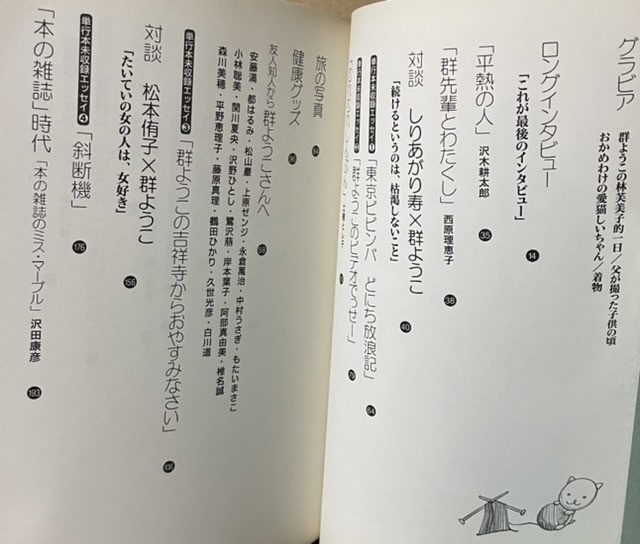 グラビア
群ようこの林芙美子的一日／父が撮った子供の頃
おかめわけの愛猫しいちゃん／着物
ロングインタビュー
「これが最後のインタビュー」
14
「平熱の人」 沢木耕太郎
35
「群先輩とわたくし」 西原理恵子
38
対談 しりあがり寿×群ようこ
「続けるというのは、枯渇しないこと」
40
単行本未収録エッセイ❶
「東京ビビンバ とにち放浪記」
64
単行本未収録エッセイ❷
「群ようこのビデオでうせー」
79
旅の写真
94
健康グッズ
96
友人知人から群ようこさんへ
98
安藤満・都はるみ・松山巖・上原ゼンジ・永倉萬治・中村うさぎ・もたいまさこ
小林聡美・関川夏央・沢野ひとし・鷺沢萠・岸本葉子・阿部真由美・椎名誠
森川美穂・平野恵理子・藤原真理・鶴田ひかり・久世光彦・白川道
単行本未収録エッセイ❸
「群ようこの吉祥寺からおやすみなさい」
108
対談 松本侑子×群ようこ
「たいていの女の人は、女好き」
156
単行本未収録エッセイ❹
「斜断機」
176
「本の雑誌」時代 「本の雑誌のミス・マープル」 沢田康彦
193